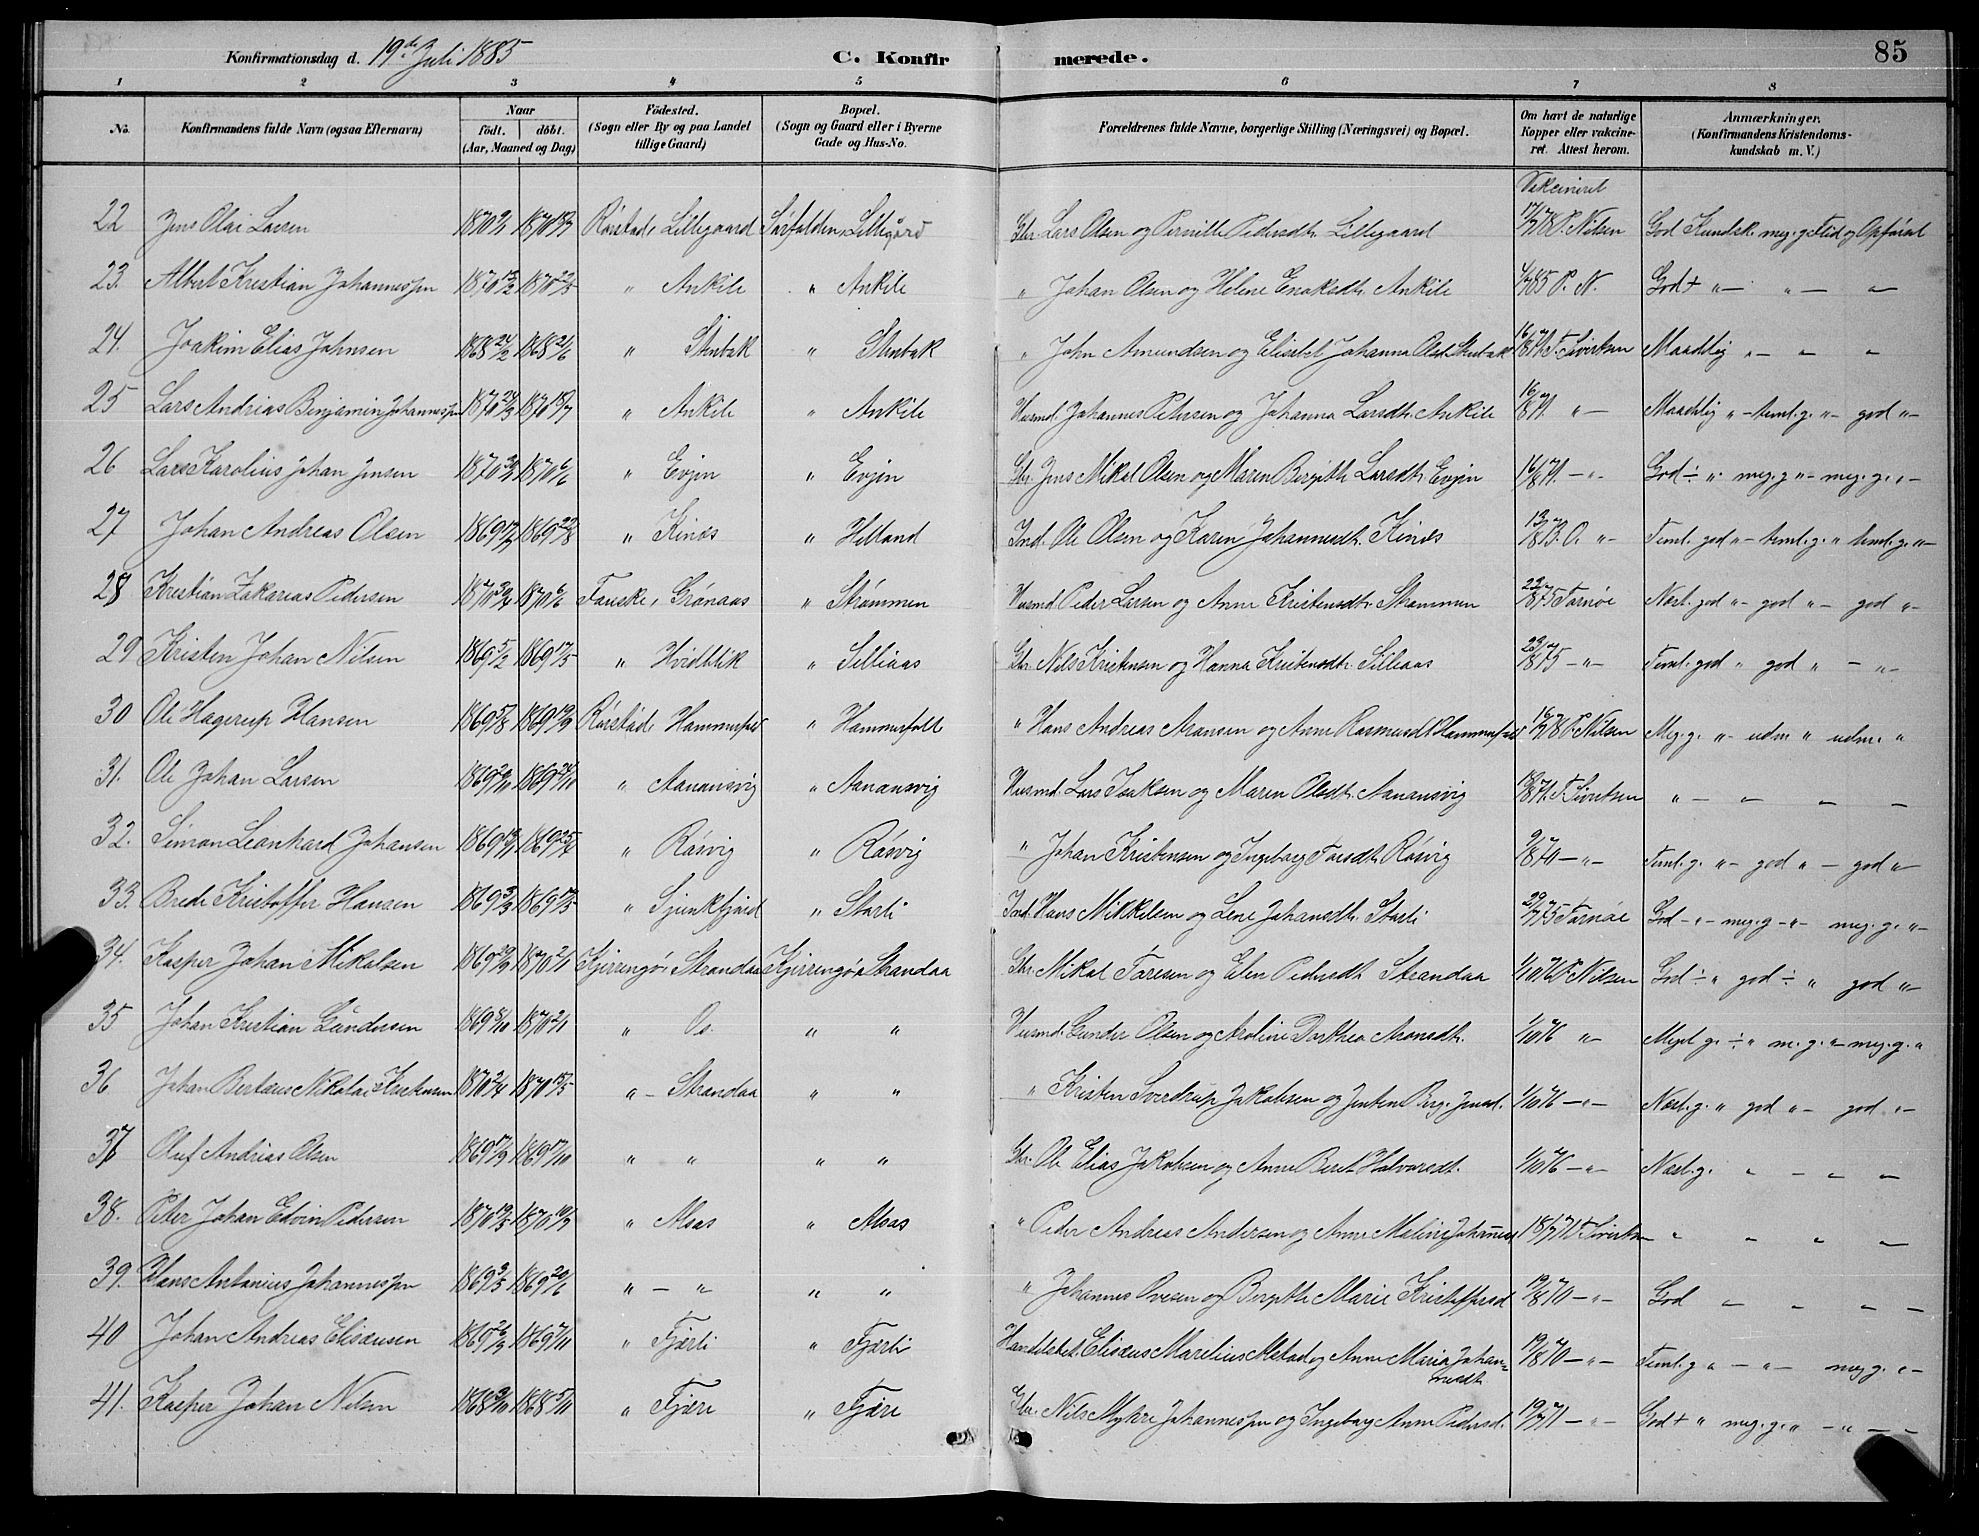 Konfirmationsdag d. 19de Juli 1885 C. Konfirmerede. 85
1 2 3 4 5 6 7 8
No. Konfirmandens fulde Navn (ogsaa Efternavn) Naar født. døbt. (Aar, Maaned og Dag) Födested. (Sogn eller By og paa Landet tillige Gaard) Bopæl. (Sogn og Gaard eller i Byerne Gade og Hus-No. Forældrenes fulde Navne, borgerlige Stilling (Næringsvei) og Bopæl. Om havt de naturlige Kopper eller vakcineret. Attest herom. Anmærkninger. (Konfirmandens Kristendomskundskab m. V.)
Vakcineret
22 Jens Olai Larsen 1870 1870 Rørstad, Lillegaard Sørfolden, Lillegård Gbr. Lars Olsen og Pernille Pedersdtr. Lillegaard 17/7 78 P. Nilsen God Kundsk. meg. g. Flid og Opførsel
23. Albert Kristian Johannessen 1870 13/2 1870 " Ankile " Ankile " Johan Olsen og Helene Enoksdtr. Ankile 85 P. N. God + " — " — "
24. Joakim Elias Johnsen 1868 24/2 1868 21/6 " Stenbak " Stenbak " John Amundsen og Elisebet Johanna Olsd. Stenbak 16/8 71 T. Sivertsen Maadelig " — " "
25 Lars Andreas Benjamin Johannessen 1870 1870 18/7 " Ankile " Ankile Husmd. Johannes Petersen og Johanna Larsdtr. Ankile 16/8 71. " — Maadelig " — teml. g. " — god " —
26 Lars Karolius Johan Jensen 1870 1870 6/6 " Evjen " Evjen Gbr. Jens Mikal Olsen og Maren Bergithe Larsdtr. Evjen 16/8 71. — " — God ÷ " meg. g " — meg. g. " —
27 Johan Andreas Olsen 1869 1869 22/8 " Kinæs " Helland Ind. Ole Olsen og Karen Johannesdtr. Kinæs 13/8 73. O. " — Teml. god " — teml. g. " teml. g. " —
28 Kristian Zakarias Pedersen 1870 1870 6/6 Fauske, Grønaas " Strømmen Husmd. Peder Larsen og Anne Kristensdtr. Strømmen 22/8 75 Tarnøe Næst. god " — god " — god " —
29 Kristen Johan Nilsen 1869 5/2 1869 17/5 " Hvidblik " Silliaas Gbr. Nils Kristensen og Hanna Kristensdtr. Silliaas 23/8 75 — " — Teml. god " god " — " —
30 Ole Hagerup Hansen 1869 5/8 1869 19/9 Rørstad, Hammerfald " Hammerfall " Hans Andreas Aronsen og Anne Rasmusdt. Hammerfald 16/7 78 P. Nilsen Meg. g. " — udm. " udm. "
31. Ole Johan Larsen 1869 29/10 1869 24/11 " Aanansvig " Aanansvig Husmd. Lars Isaksen og Maren Olsdtr. Aanansvig 71. T. Sivertsen " — " " —
32. Simon Leonhard Johansen 1869 1869 25/4 " Røsvig " Røsvig " Johan Kristensen og Ingeborg Toresdtr. Røsvig 9/8 70 — " — Teml. g. " — god " — god " —
33. Brede Kristoffer Hansen 1869 3/3 1869 17/5 " Sjunkfjord " Storli Ind. Hans Mikkelsen og Lene Johansdtr. Storli 23/7 75 Tarnøe God — " — meg. g — " — meg. g. " —
34. Kasper Johan Mikalsen 1869 29/9 1870 2/1 Kjerringø, Strandaa Kjerringø, Strandaa Gbr. Mikal Toresen og Elen Pedersdtr. Strandaa 1/10 76 P. Nilsen God ÷ " god ÷ " god " —
35 Johan Kristian Gundersen 1869 8/10 1870 2/1 " Os. " " Husmd. Gunder Olsen og Karoline Dorthea Aronsdtr. 1/10 76 " — Meget g. ÷ " m. g. " — meg. g. "
36 Johan Bertæus Nikolai Kristensen 1870 2/4 1870 15/5 " — Strandaa " " " Kristen Sverdrup Jakobsen og Jentine Berg. Jensd. 1/10 76 — " — Næst. g. " god " — god " —
37 Oluf Andrias Olsen 1869 17/9 1869 17/10 " " " " Gbr. Ole Elias Jakobsen og Anne Berit Halvorsdt. 1/10 76 — " — Næst. g. " — " — "
38. Peter Johan Edvin Pedersen 1870 19/5 1870 10/7 " Alsos " Alsos " Peder Andreas Andersen og Anne Maline Johannesd. 18/7 71 T. Sivertsen " " " —
39. Hans Antonius Johannessen 1869 3/5 1869 20/6 " — " " " " Johannes Ovesen og Bergithe Marie Kristoffersd. 19/8 70 — " — God " " " —
40 Johan Andreas Elisæusen 1869 26/9 1869 7/11 " Fjærli " Fjærli Handelsbet. Elisæus Marelius Alstad og Anne Maria Johannesdtr. 19/8 70 — " — Teml. g " — " — meg. g. " —
41. Kasper Johan Nilsen 1868 3/10 1868 5/11 " Fjære " Fjære Gbr. Nils Myhre Johannessen og Ingeborg Anne Pedersd. 19/7 71 — " — God + " meg. g. " — " —